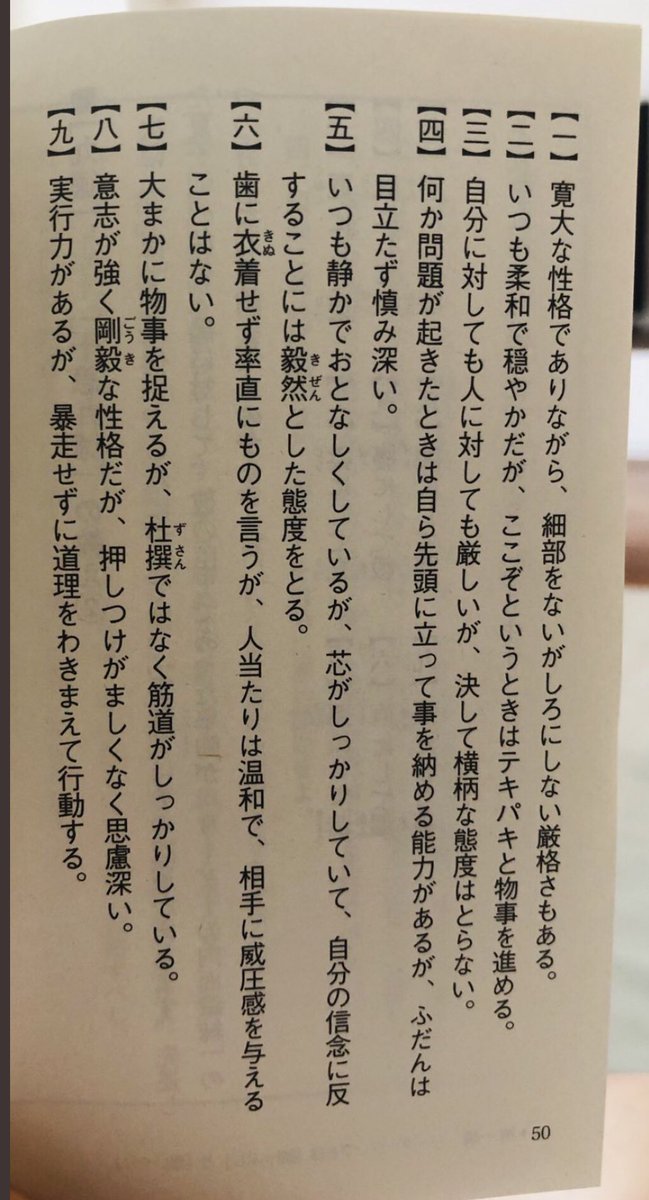 【一】寛大な性格でありながら、細部をないがしろにしない厳格さもある。
【二】いつも柔和で穏やかだが、ここぞというときはテキパキと物事を進める。
【三】自分に対しても人に対しても厳しいが、決して横柄な態度はとらない。
【四】何か問題が起きたときは自ら先頭に立って事を納める能力があるが、ふだんは
目立たず慎み深い。
【五】いつも静かでおとなしくしているが、芯がしっかりしていて、自分の信念に反
することには毅然とした態度をとる。
【六】歯に衣着せず率直にものを言うが、人当たりは温和で、相手に威圧感を与える
ことはない。
【七】大まかに物事を捉えるが、杜撰ではなく筋道がしっかりしている。
【八】意志が強く剛毅な性格だが、押しつけがましくなく思慮深い。
【九】実行力があるが、暴走せずに道理をわきまえて行動する。
50